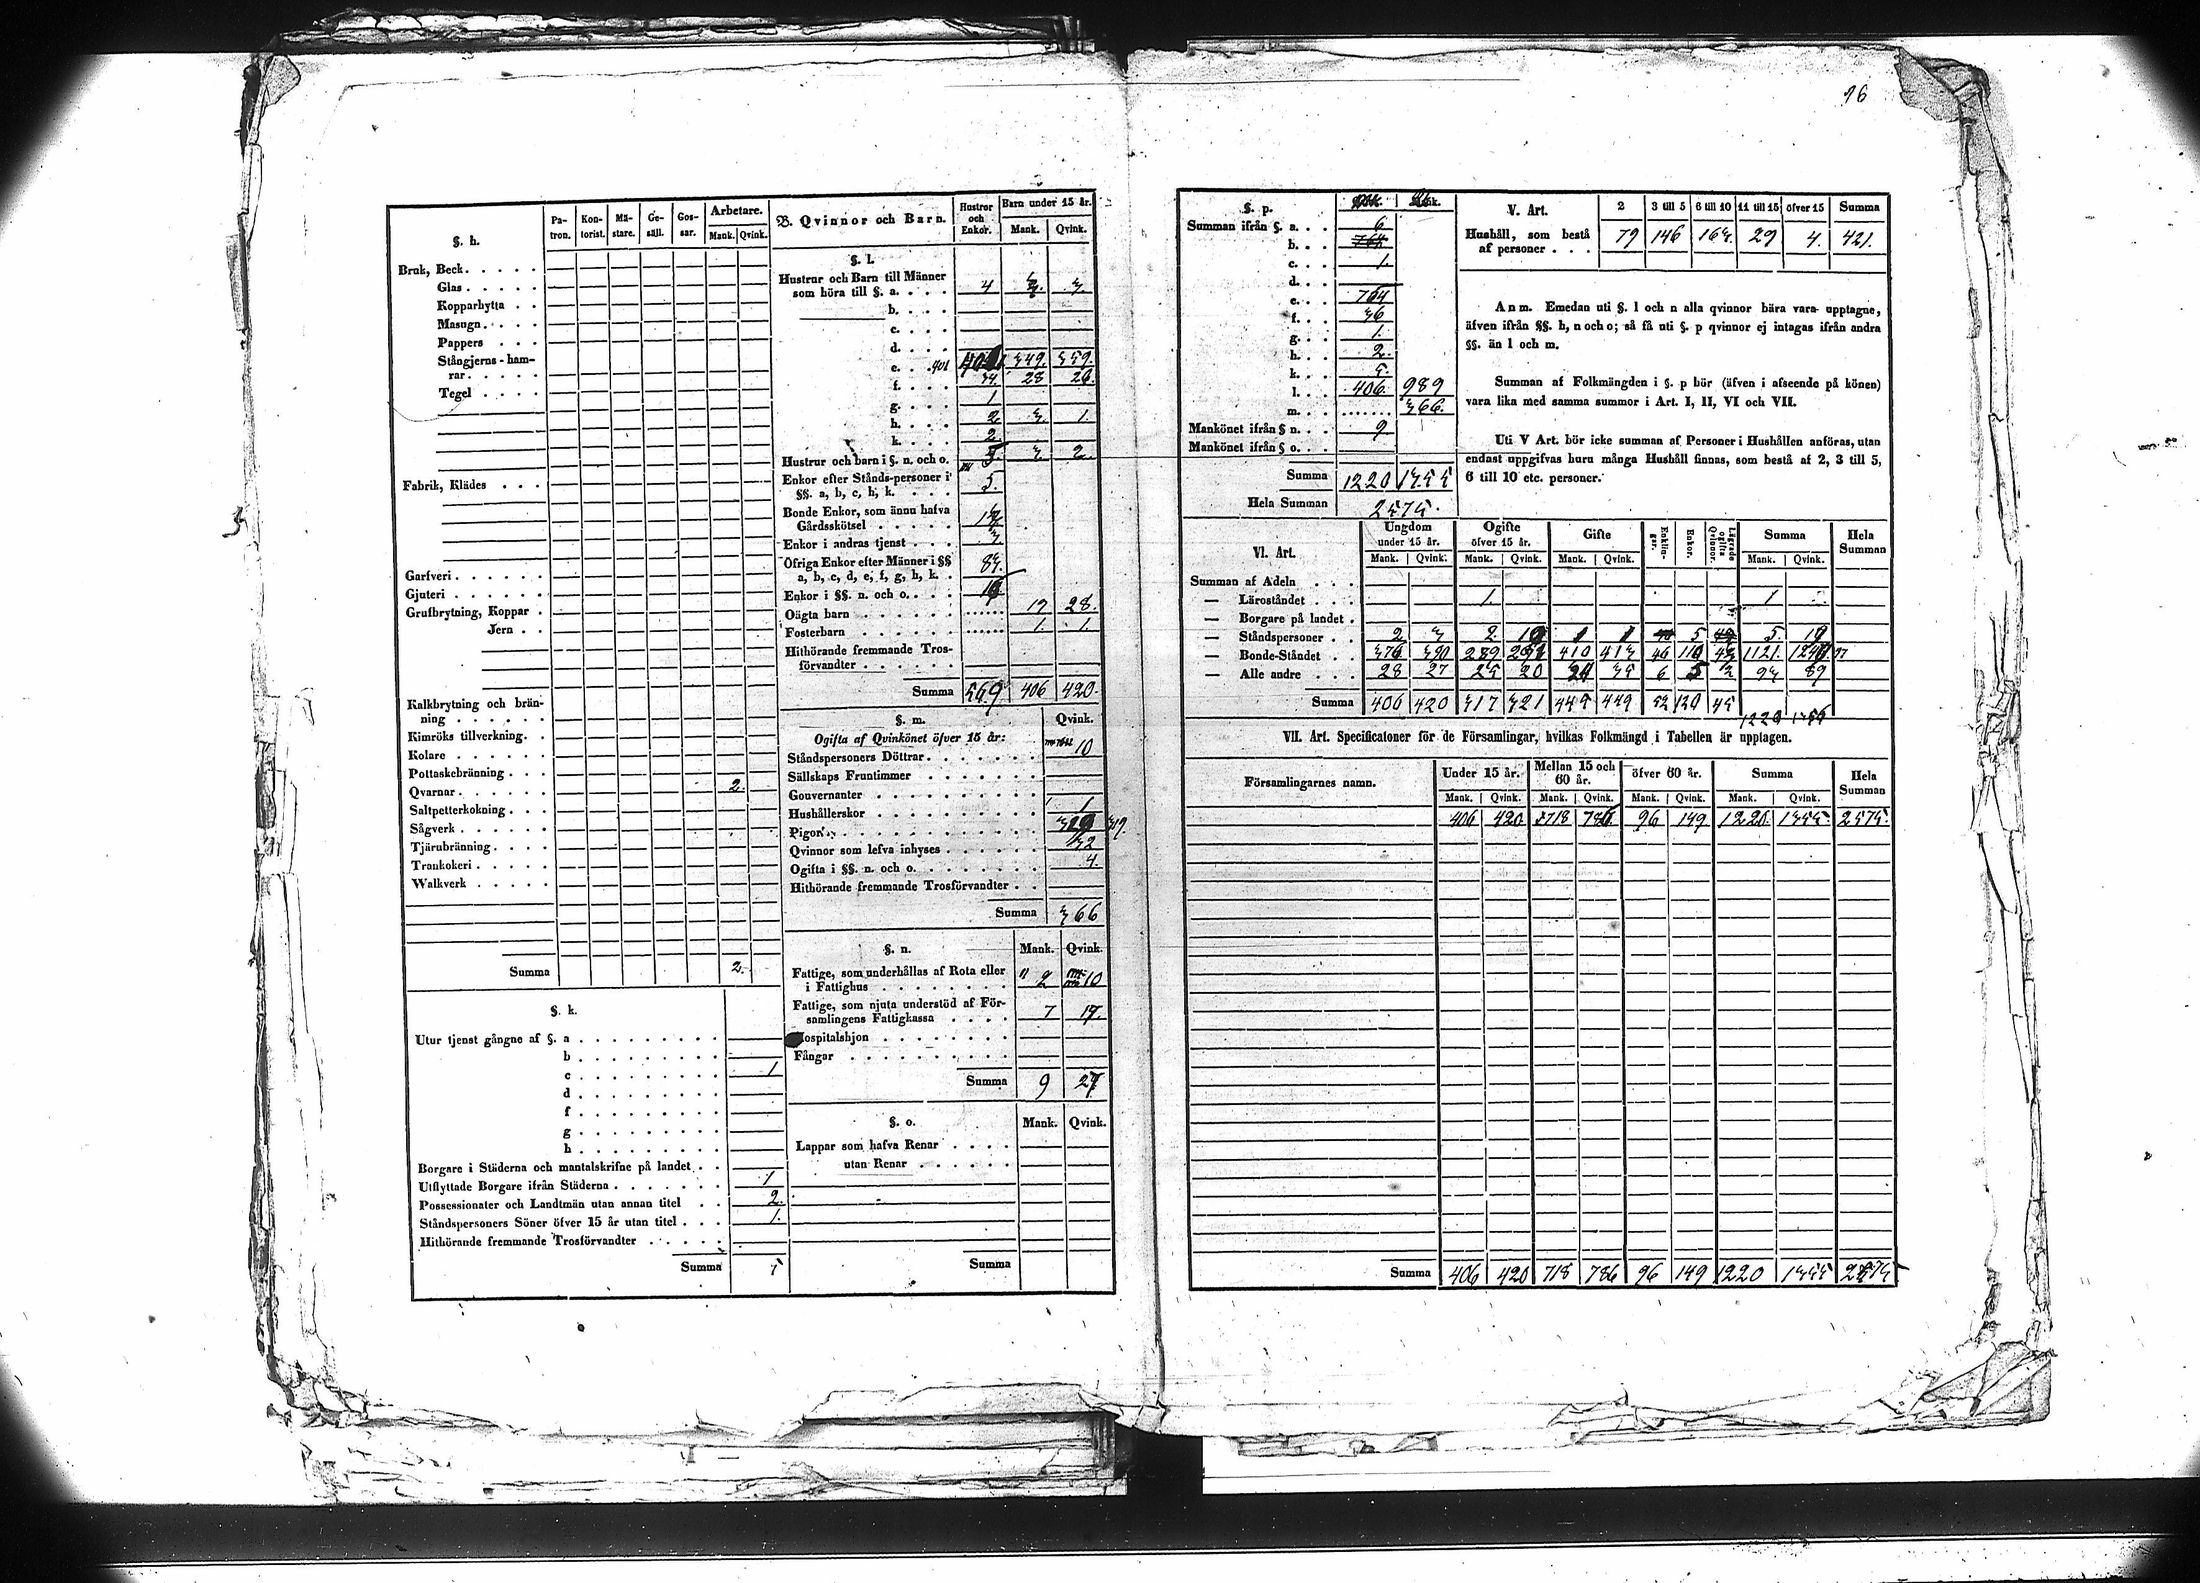 16
§. h.
Pa-tron.
Kon-torist.
Mä-stare.
Ge-säll.
Gos-sar.
Arbetare.
Mank. Qvink.
Bruk, Beck
Glas
Kopparhytta
Masugn
Pappers
Stångjerns-ham-
rar
Tegel
Fabrik, Klädes
Garfveri
Gjuteri
Grufbrytning, Koppar
Jern
Kalkbrytning och brän-
ning
Kimröks tillverkning
Kolare
Pottaskebränning
Qvarnar 2.
Saltpetterkokning
Sågverk
Tjärubränning
Trankokeri
Walkverk
Summa 2.
§. k.
Utur tjenst gångne af §. a
b
c 1
d
f
g
h
Borgare i Städerna och mantalskrifne på landet
Utflyttade Borgare ifrån Städerna 1
Possessionater och Landtmän utan annan titel 2.
Ståndspersoners Söner öfver 15 år utan titel 1.
Hithörande fremmande Trosförvandter
Summa 5
B. Qvinnor och Barn.
Hustror och Enkor.
Barn under 15 år.
Mank. Qvink.
§. l.
Hustrur och Barn till Männer
som höra till §. a. 4
b.
c.
d.
e. 401 349. 359.
f. 34. 28 26.
g. 1
h. 2 3. 1.
k. 2.
Hustrur och barn i §. n. och o. 3. 2
Enkor efter Stånds-personer i
§§. a, b, c, h, k. 5.
Bonde Enkor, som ännu hafva
Gårdsskötsel
Enkor i andras tjenst 3.
Öfriga Enkor efter Männer i §§
a, b, c, d, e, f, g, h, k. 83.
Enkor i §§. n. och o.
Oägta barn 19 28.
Fosterbarn 1. 1.
Hithörande fremmande Tros-
förvandter
Summa 569 406 420.
§. m. Qvink.
Ogifta af Qvinkönet öfver 15 år:
Ståndspersoners Döttrar 10
Sällskaps Fruntimmer
Gouvernanter
Hushållerskor 1
Pigor 319.
Qvinnor som lefva inhyses 32
Ogifta i §§. n. och o. 4.
Hithörande fremmande Trosförvandter
Summa 366
§. n. Mank. Qvink.
Fattige, som underhållas af Rota eller
i Fattighus 2 10
Fattige, som njuta understöd af För-
samlingens Fattigkassa 7 17.
Hospitalshjon
Fångar
Summa 9 27
§. o. Mank. Qvink.
Lappar som hafva Renar
utan Renar
Summa
§. p.
Summan ifrån §. a. 6
b. 764
c. 1.
d.
e. 754
f. 36
g. 1.
h. 2.
k. 5.
l. 406. 989
m. 366.
Mankönet ifrån § n. 9
Mankönet ifrån § o.
Summa 1220 1355
Hela Summan 2575.
V. Art. 2 3 till 5 6 till 10 11 till 15 öfver 15 Summa
Hushåll, som bestå
af personer 79 146 163. 29 4. 421.
Anm. Emedan uti §. l och n alla qvinnor bära vara upptagne,
äfven ifrån §§. h, n och o; så få uti §. p qvinnor ej intagas ifrån andra
§§. än l och m.
Summan af Folkmängden i §. p bör (äfven i afseende på könen)
vara lika med samma summor i Art. I, II, VI och VII.
Uti V Art. bör icke summan af Personer i Hushållen anföras, utan
endast uppgifvas huru många Hushåll finnas, som bestå af 2, 3 till 5,
6 till 10 etc. personer.
VI. Art.
Ungdom under 15 år.
Ogifte öfver 15 år.
Gifte
Enklin-gar.
Enkor.
Lägrade ogifta Qvinnor.
Summa
Hela Summan
Mank. Qvink. Mank. Qvink. Mank. Qvink. Mank. Qvink.
Summan af Adeln
— Läroståndet 1. 1
— Borgare på landet
— Ståndspersoner 2 3 2 1 1 5 5. 19
— Bonde-Ståndet 376 390 289 410 413 46 110 43 1121. 1247
— Alle andre 28 27 25 20 34 35 6 5 2 93 89
Summa 406 420 317 321 445 449 52 120 45 1220 1355
VII. Art. Specificatoner för de Församlingar, hvilkas Folkmängd i Tabellen är upptagen.
Församlingarnes namn.
Under 15 år.
Mellan 15 och 60 år.
öfver 60 år.
Summa
Hela Summan
Mank. Qvink. Mank. Qvink. Mank. Qvink. Mank. Qvink.
406 420 718 786 96 149 1220. 1355. 2575.
Summa 406 420 718 786 96 149 1220 1355 2575